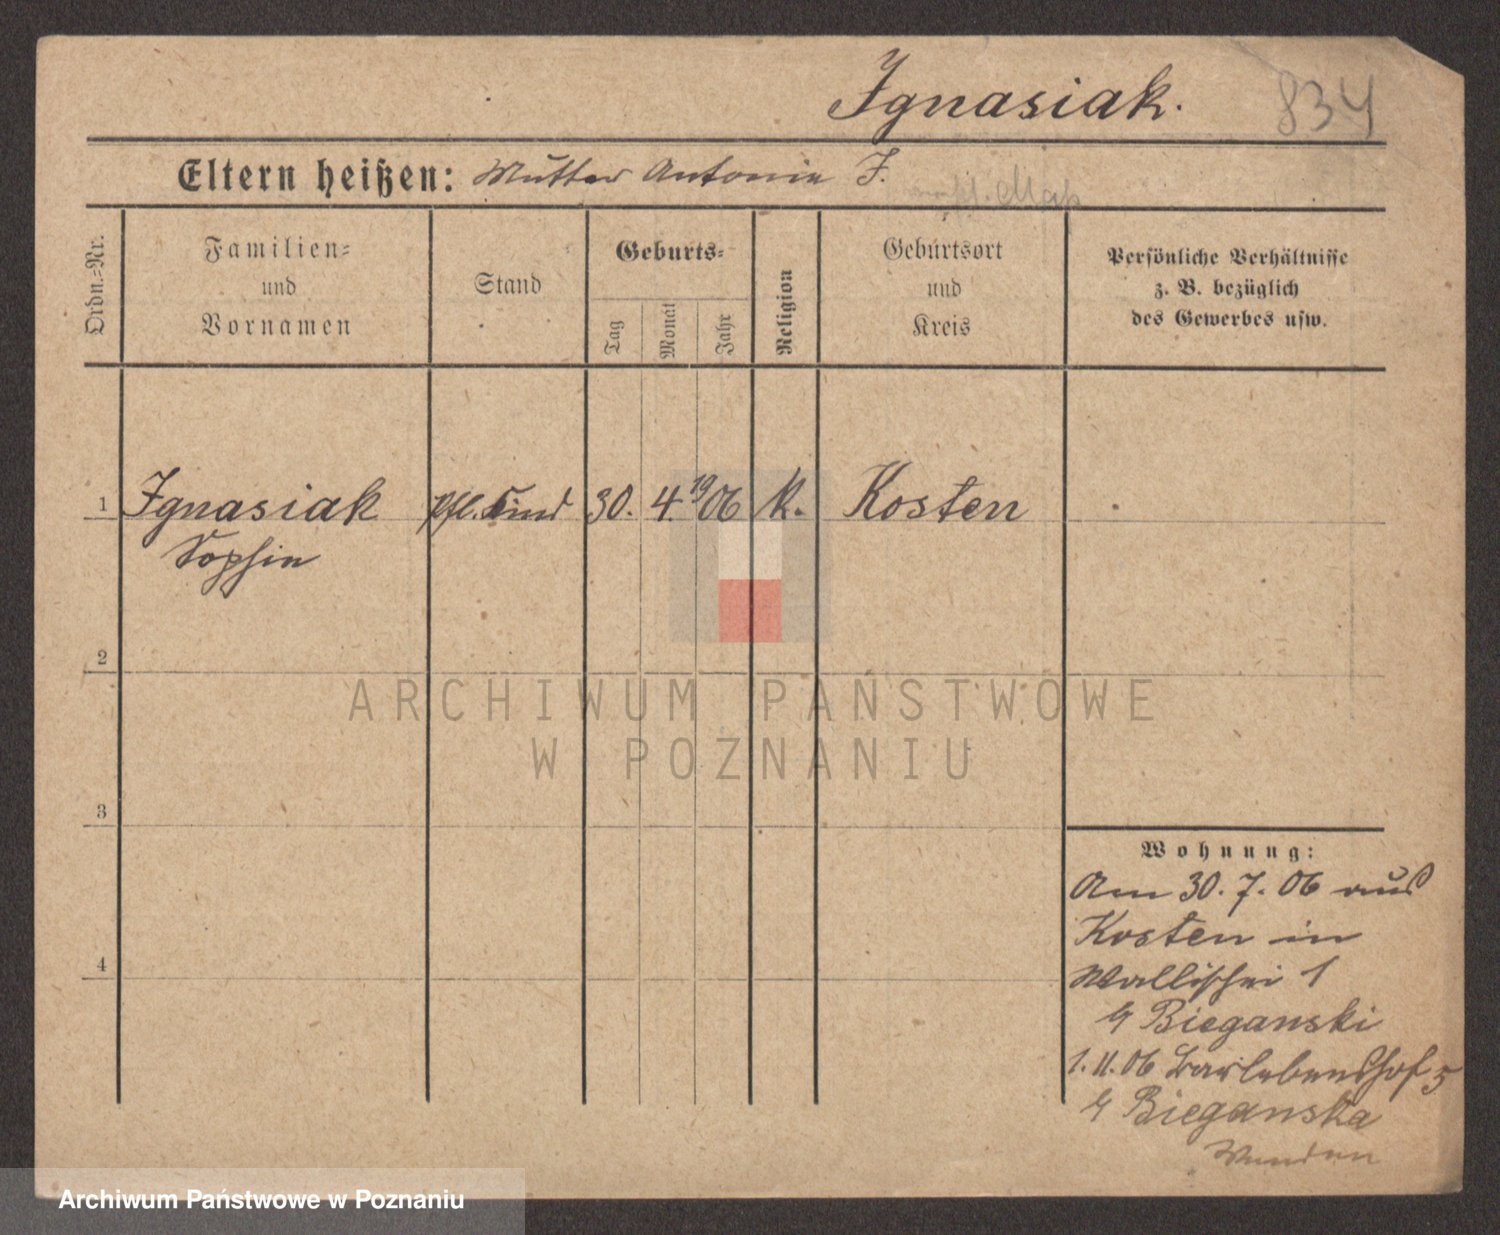 Ignasiak.
834
Eltern heißen: Mutter Antonie I.
Ordn.-Nr.
Familien- und Vornamen
Stand
Geburts-
Tag
Monat
Jahr
Religion
Geburtsort und Kreis
Persönliche Verhältnisse
z. B. bezüglich
des Gewerbes usw.
1 Ignasiak Pfl. Kind 30. 4. 1906 k. Kosten
Sophie
2
3
4
Wohnung:
Am 30. 7. 06 aus
Kosten in
Wallischei 1
b/ Bieganski
1. 11. 06 Barlebenshof 5
b/ Bieganska
ARCHIWUM PAŃSTWOWE
W POZNANIU
Archiwum Państwowe w Poznaniu